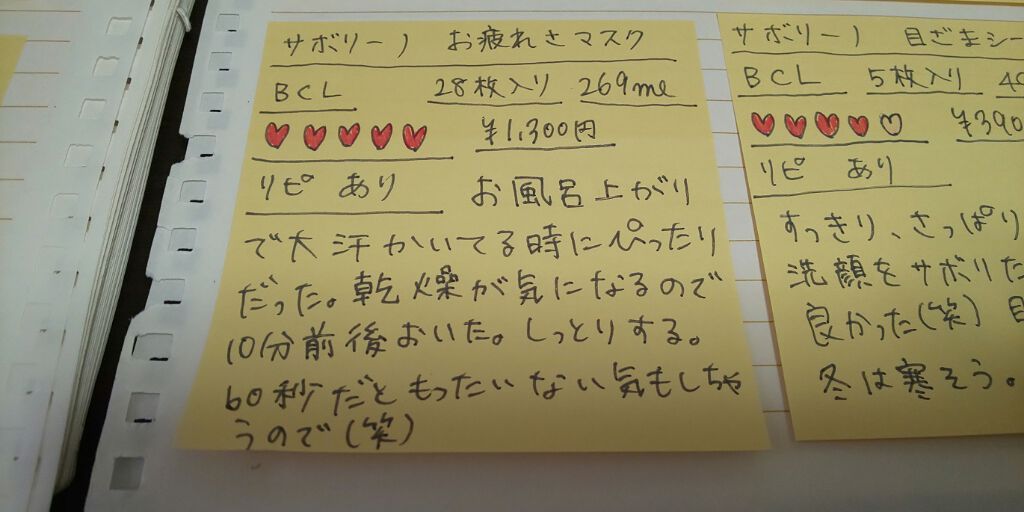 サボリーノ お疲れさマスク
BCL 28枚入り 269ml
♥♥♥♥♥ ¥1,300円
リピ あり お風呂上がり
で大汗かいてる時にぴったり
だった。乾燥が気になるので
10分前後おいた。しっとりする。
60秒だともったいない気もしちゃ
うので(笑)
サボリーノ 目ざまシー
BCL 5枚入り
♥♥♥♥♡ ¥390
リピ あり
すっきり、さっぱり
洗顔をサボリた
良かった(笑)
冬は寒そう。